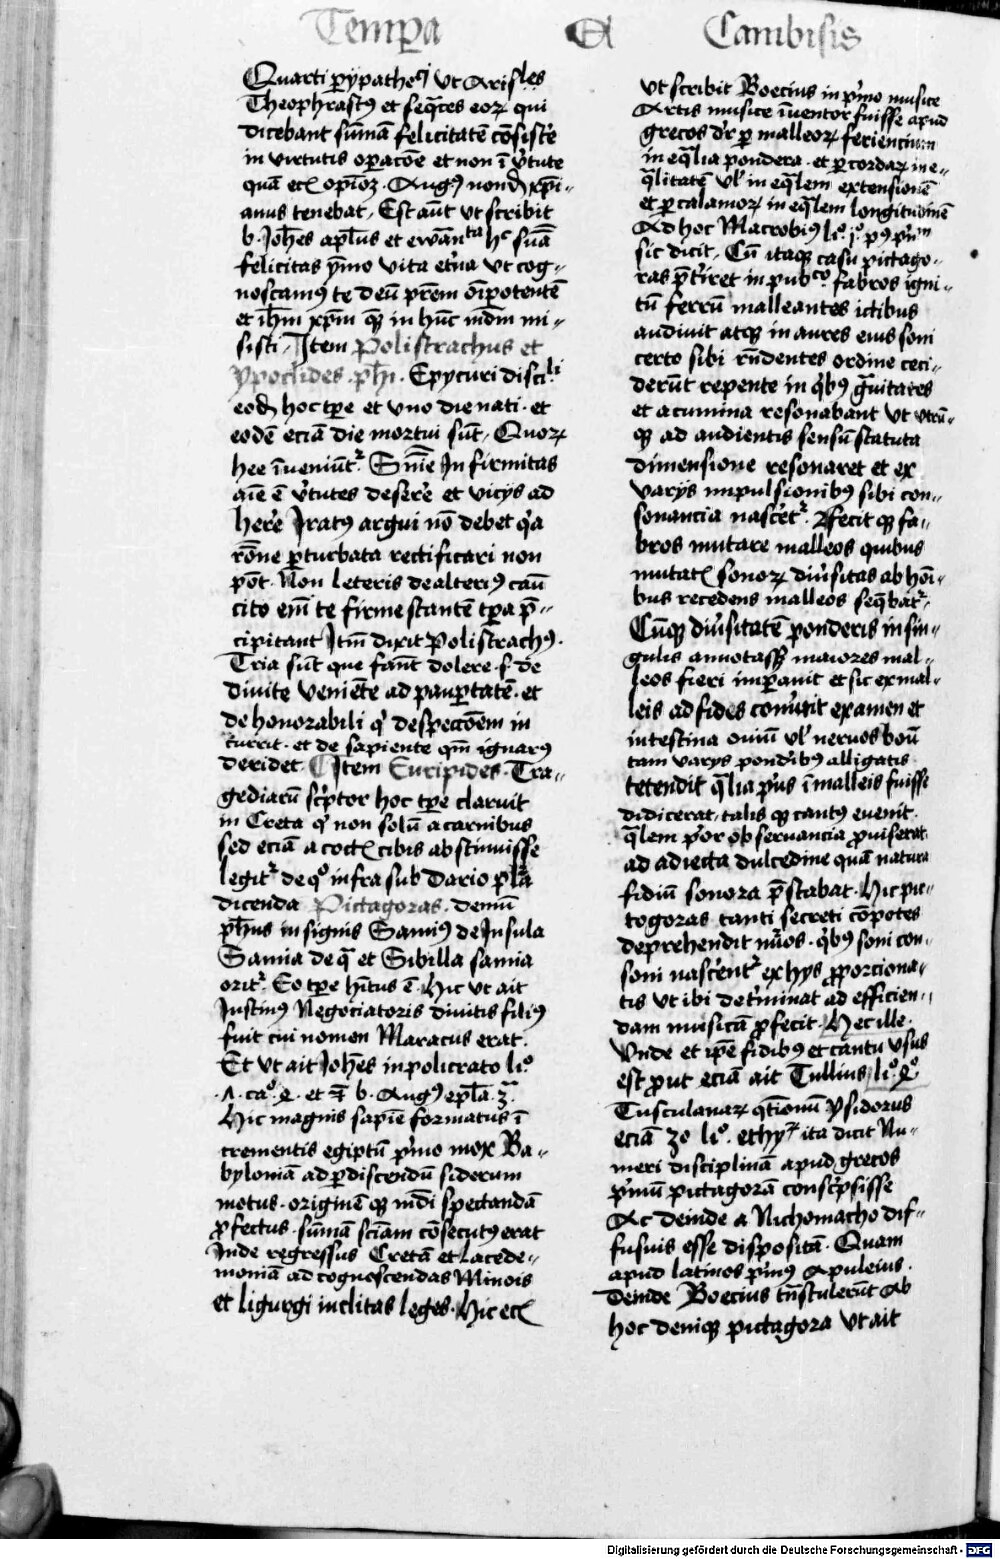 Tempa Et Cambisis
Quarti ꝑypathetici ut Arisles
Theophrastꝰ et seq̄tes eoꝝ qui
dicebant sūmā felicitatē cōsistere
in virtutis oꝑacōe et non ī v̓tute
quā opioꝫ. Augꝰ nond xp̄i-
anus tenebat. Est aūt ut scribit
b. Joh̄es apl̄us et ewāⁿta hᶜ suā
felicitas vita et̓na ut cog-
noscamꝰ te deū prēm oīpotentē
et ih̄m xp̄m qꝫ in hūc mdm mi-
sisti. Item Polistrachus et
ypoclides. ph̄i. Epycuri discili
eod hoc tꝑe et uno die nati. et
eodē eciā die mortui sūt. Quoꝝ
hee īveniūtr. Infirmitas
aīe ē v̓tutes deser̄e et vicijs ad
her̓e Iratꝰ argui nō debet qa
rōne ꝑturbata rectificari non
pōt. Non leteris de alteriꝰ cāu
cito em̄ te firme stantē tꝑa p̄-
cipitant Itm̄ dixit Polistrachꝰ.
Tria sūt que faūt dolere. s. de
divite veniēte ad pauꝑtatē. et
de honorabili qi despectōem in
currit. et de sapiente qm̄ ignarꝰ
deridet. Item Euripides. Tra-
gediarū sc̓ptor hoc tꝑe claruit
in Creta qi non solū a carnibus
sed eciā a coctis cibis abstinuisse
legitr de qo infra sub Dario ꝑla
dicenda Pictagoras. demū
ph̄us insignis Samiꝰ de Insula
Samia de qa et Sibilla samia
oritr. Eo tꝑe hītus ē. Hic ut ait
Justinꝰ Negociatoris divitis filiꝰ
fuit cui nomen Maracus erat.
Et ut ait Joh̄es in policrato lio.
.1. cao. 2. et b. Augꝰ epl̄a. 3.
Hic magnis sapīe formatus ī
crementis egiptū p̓mo mox Ba-
byloniā ad ꝑdiscendū siderum
motus. originē qꝫ mdi spectandā
ꝓfectus. sūmā sciam cōsecutꝰ erat
Inde regressus Cretā et Lacede-
moniā ad cognoscendas Minois
et ligurgi inclitas leges. Hic
ut scribit Boecius in p̓mo musice
Artis musice īventor fuisse apud
grecos dr ꝑ malleoꝝ ferienciū
in eq̄lia pondera. et ꝑ cordaꝝ ine-
q̄litatē ul̓ in eq̄lem extensionē
et ꝑ calamoꝝ in eq̄lem longitudinē
Ad hoc Macrobiꝰ lio.
sic dicit. Cū itaqꝫ casu pictago-
ras p̄tiret in pubco fabros igni-
tū ferrū malleantes ictibus
audivit atqꝫ in aures eius soni
certo sibi rn̄dentes ordine ceci-
derūt repente in qb̓ꝰ gravitates
et acumina resonabant ut utrū-
qꝫ ad audientis sensū statuta
dimensione resonaret et ex
varijs impulsionibꝰ sibi con-
sonancia nascetr. Afecit qꝫ fa-
bros mutare malleos quibus
mutatis sonoꝝ div̓sitas ab hoī-
bus recedens malleos seq̄batr.
Cūqꝫ div̓sitatē ponderis in sin-
gulis annotasꝫ maiores mal-
leos fieri imꝑavit et sic ex mal-
leis ad fides conv̓tit examen et
intestina oviū ul̓ nervos boū
tam varijs pondib̓ꝰ alligatis
tetendit q̄lia pꝰus ī malleis fuisse
didicerat. talis qꝫ cantꝰ evenit.
q̄lem p̓or observancia ꝓmiserat
ad adiecta dulcedine quā natura
fidiū sonora p̄stabat. Hic pic-
togoras tanti secreti cōpotes
deprehendit nūos. qb̓ꝰ soni con-
soni nasc̓entr ex hys ꝓporciona-
tis ut ibi det̓minat ad efficien-
dam musicā ꝓfecit. Hec ille.
Unde et ip̄e fidibꝰ et cantu usus
est ꝓut eciā ait Tullius lio. 2o.
Tusculanaꝝ qtionū Ysidorus
eciā 3o lio. ethy. ita dicit Nu-
meri disciplinā apud grecos
p̓mū pictagorā consc̓psisse
Ac deinde a Nichomacho dif-
fusius esse dispositā. Quam
apud latinos p̓mꝰ Apuleius.
Deinde Boecius tn̄stulerūt Ab
hoc deniqꝫ pictagora ut ait
Digitalisierung gefördert durch die Deutsche Forschungsgemeinschaft - DFG